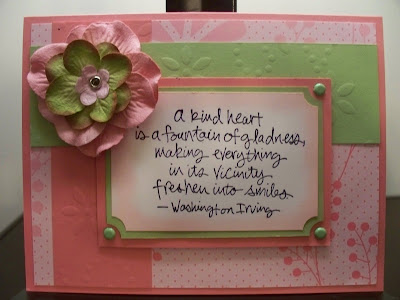 a kind heart
is a fountain of gladness,
making everything
in its vicinity
freshen into smiles
— Washington Irving